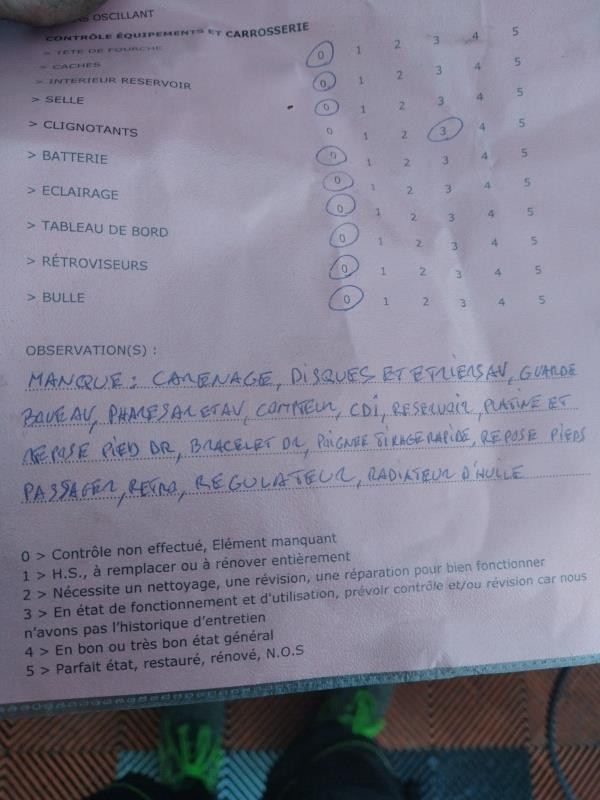 AS OSCILLANT
CONTRÔLE ÉQUIPEMENTS ET CARROSSERIE
> TETE DE FOURCHE 0 1 2 3 4 5
> CACHES 0 1 2 3 4 5
> INTERIEUR RESERVOIR 0 1 2 3 4 5
> SELLE 0 1 2 3 4 5
> CLIGNOTANTS 0 1 2 3 4 5
> BATTERIE 0 1 2 3 4 5
> ECLAIRAGE 0 1 2 3 4 5
> TABLEAU DE BORD 0 1 2 3 4 5
> RÉTROVISEURS 0 1 2 3 4 5
> BULLE 0 1 2 3 4 5
OBSERVATION(S) :
MANQUE : CARENAGE, DISQUES ET ETRIERS AV, GUARDE
BOUE AV, PHARES AR ET AV, COMPTEUR, CDI, RESERVOIR, PLATINE ET
REPOSE PIED DR, BRACELET DR, POIGNEE TIRAGE RAPIDE, REPOSE PIEDS
PASSAGER, RETRO, REGULATEUR, RADIATEUR D'HUILE
0 > Contrôle non effectué, Elément manquant
1 > H.S., à remplacer ou à rénover entièrement
2 > Nécessite un nettoyage, une révision, une réparation pour bien fonctionner
3 > En état de fonctionnement et d'utilisation, prévoir contrôle et/ou révision car nous
n'avons pas l'historique d'entretien
4 > En bon ou très bon état général
5 > Parfait état, restauré, rénové, N.O.S